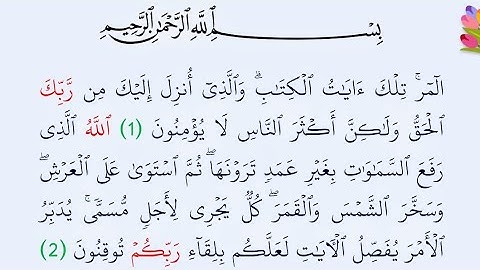 بِسْمِ اللَّهِ الرَّحْمَٰنِ الرَّحِيمِ
الٓمٓرۚ تِلْكَ ءَايَٰتُ الْكِتَٰبِۗ وَالَّذِىٓ أُنزِلَ إِلَيْكَ مِن رَّبِّكَ
الْحَقُّ وَلَٰكِنَّ أَكْثَرَ النَّاسِ لَا يُؤْمِنُونَ (1) اللَّهُ الَّذِى
رَفَعَ السَّمَٰوَٰتِ بِغَيْرِ عَمَدٍ تَرَوْنَهَاۖ ثُمَّ اسْتَوَىٰ عَلَى الْعَرْشِۖ
وَسَخَّرَ الشَّمْسَ وَالْقَمَرَۖ كُلٌّ يَجْرِى لِأَجَلٍ مُّسَمًّىۚ يُدَبِّرُ
الْأَمْرَ يُفَصِّلُ الْءَايَٰتِ لَعَلَّكُم بِلِقَآءِ رَبِّكُمْ تُوقِنُونَ (2)